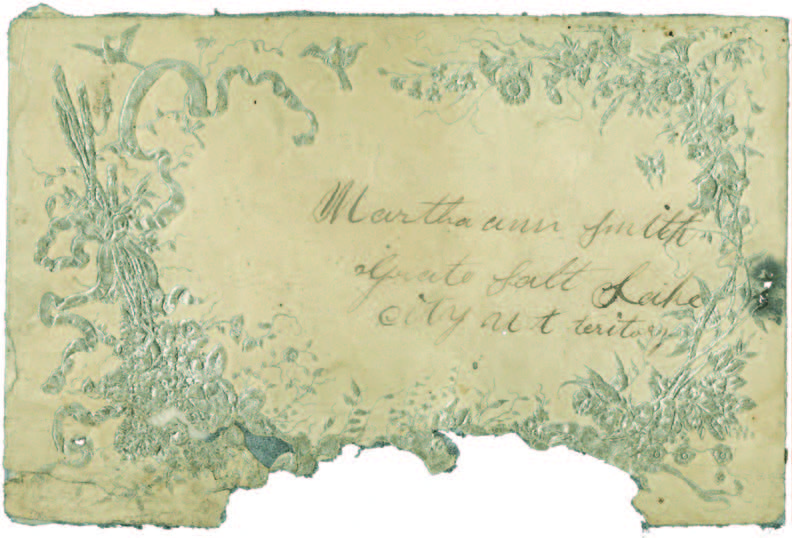 Martha ann Smith
Grate Salt Lake
City ut teritory